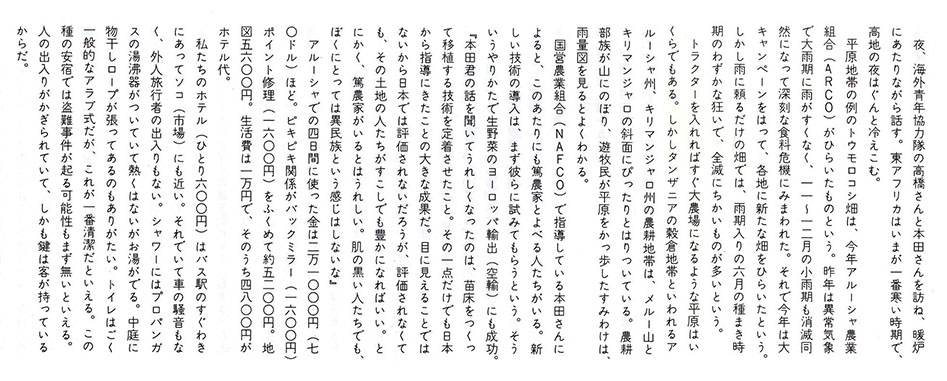 夜、海外青年協力隊の高橋さんと本田さんを訪ね、暖炉
にあたりながら話す。東アフリカはいまが一番寒い時期で、
高地の夜はぐんと冷えこむ。
　平原地帯の例のトウモロコシ畑は、今年アルーシャ農業
組合（ARCO）がひらいたものという。昨年は異常気象
で大雨期に雨がすくなく、一一～一二月の小雨期も消滅同
然になって深刻な食料危機にみまわれた。それで今年は大
キャンペーンをはって、各地に新たな畑をひらいたという。
しかし雨に頼るだけの畑では、雨期入りの六月の種まき時
期のわずかな狂いで、全滅にちかいものが多いという。
　トラクターを入れればすぐ大農場になるような平原はい
くらでもある。しかしタンザニアの穀倉地帯といわれるア
ルーシャ州、キリマンジャロ州の農耕地帯は、メルー山と
キリマンジャロの斜面にぴったりとはりついている。農耕
部族が山にのぼり、遊牧民が平原をかっ歩したすみわけは、
雨量図を見るとよくわかる。
　国営農業組合（NAFCO）で指導している本田さんに
よると、このあたりにも篤農家とよべる人たちがいる。新
しい技術の導入は、まず彼らに試みてもらうという。そう
いうやりかたで生野菜のヨーロッパ輸出（空輸）にも成功。
『本田君の話を聞いてうれしくなったのは、苗床をつくっ
て移植する技術を定着させたこと。その一点だけでも日本
から指導にきたことの大きな成果だ。目に見えることでは
ないから日本では評価されないだろうが、評価されなくて
も、その土地の人たちがすこしでも豊かになればいい。と
にかく、篤農家がいるとはうれしい。肌の黒い人たちでも、
ぼくにとっては異民族という感じはしないな』
　アルーシャでの四日間に使った金は二万一〇〇〇円（七
〇ドル）ほど。ピキピキ関係がバックミラー（一六〇〇円）
ポイント修理（一六〇〇円）をふくめて約五二〇〇円。地
図五六〇〇円。生活費は一万円で、そのうち四八〇〇円が
ホテル代。
　私たちのホテル（ひとり六〇〇円）はバス駅のすぐわき
にあってソコ（市場）にも近い。それでいて車の騒音もな
く、外人旅行者の出入りもない。シャワーにはプロパンガ
スの湯沸器がついていて熱くはないがお湯がでる。中庭に
物干しロープが張ってあるのもありがたい。トイレはごく
一般的なアラブ式だが、これが一番清潔だといえる。この
種の安宿では盗難事件が起る可能性もまず無いといえる。
人の出入りがかぎられていて、しかも鍵は客が持っている
からだ。